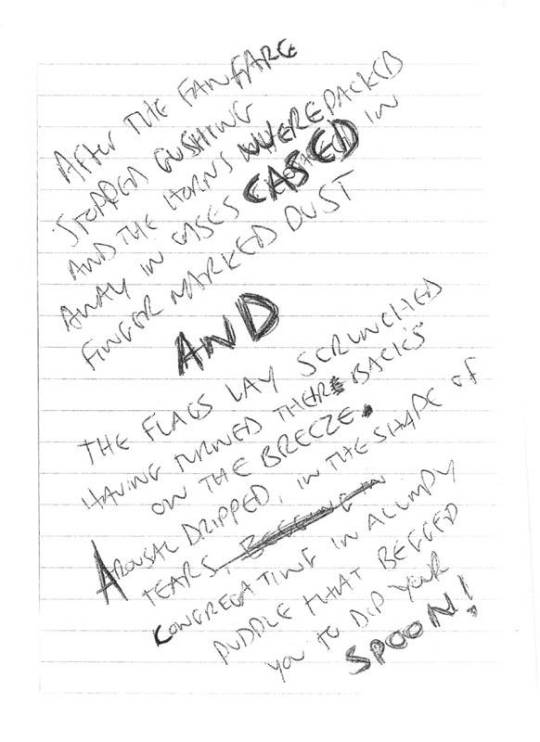 AFTER THE FANFARE
STOPPED GUSHING
AND THE HORNS WERE PACKED
AWAY IN CASES CASED IN
FINGER MARKED DUST
AND
THE FLAGS LAY SCRUNCHED
HAVING TURNED THEIR BACKS
ON THE BREEZE.
AROUSAL DRIPPED, IN THE SHAPE OF
TEARS, BEGGING IN
CONGREGATING IN A LUMPY
PUDDLE THAT BEGGED
YOU TO DIP YOUR
SPOON!